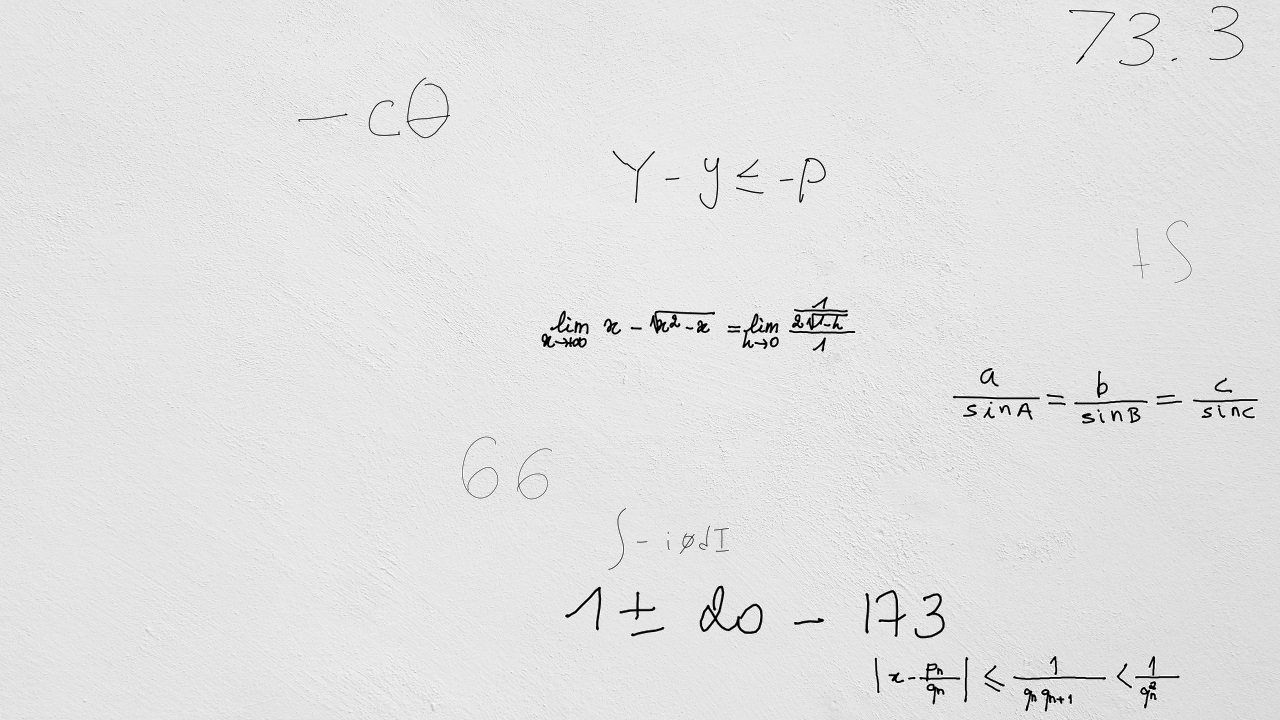 73.3
-cθ
Y-y≤-p
+S
\lim_{x→+∞} x-\sqrt{x^2-x} = \lim_{h→0} \frac{\frac{1}{2\sqrt{1-h}}}{1}
\frac{a}{sinA} = \frac{b}{sinB} = \frac{c}{sinC}
66
∫-iϕdI
1±20-173
|x-\frac{p_n}{q_n}| ≤ \frac{1}{q_n q_{n+1}} < \frac{1}{q_n^2}